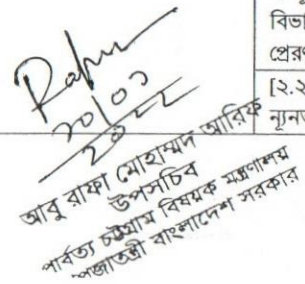 বিভা
প্রেরণ
[২.২
ন্যূনত
Rafa
২০/০১
২০২২
আবু রাফা মোহাম্মদ আরিফ
উপসচিব
পার্বত্য চট্টগ্রাম বিষয়ক মন্ত্রণালয়
গণপ্রজাতন্ত্রী বাংলাদেশ সরকার